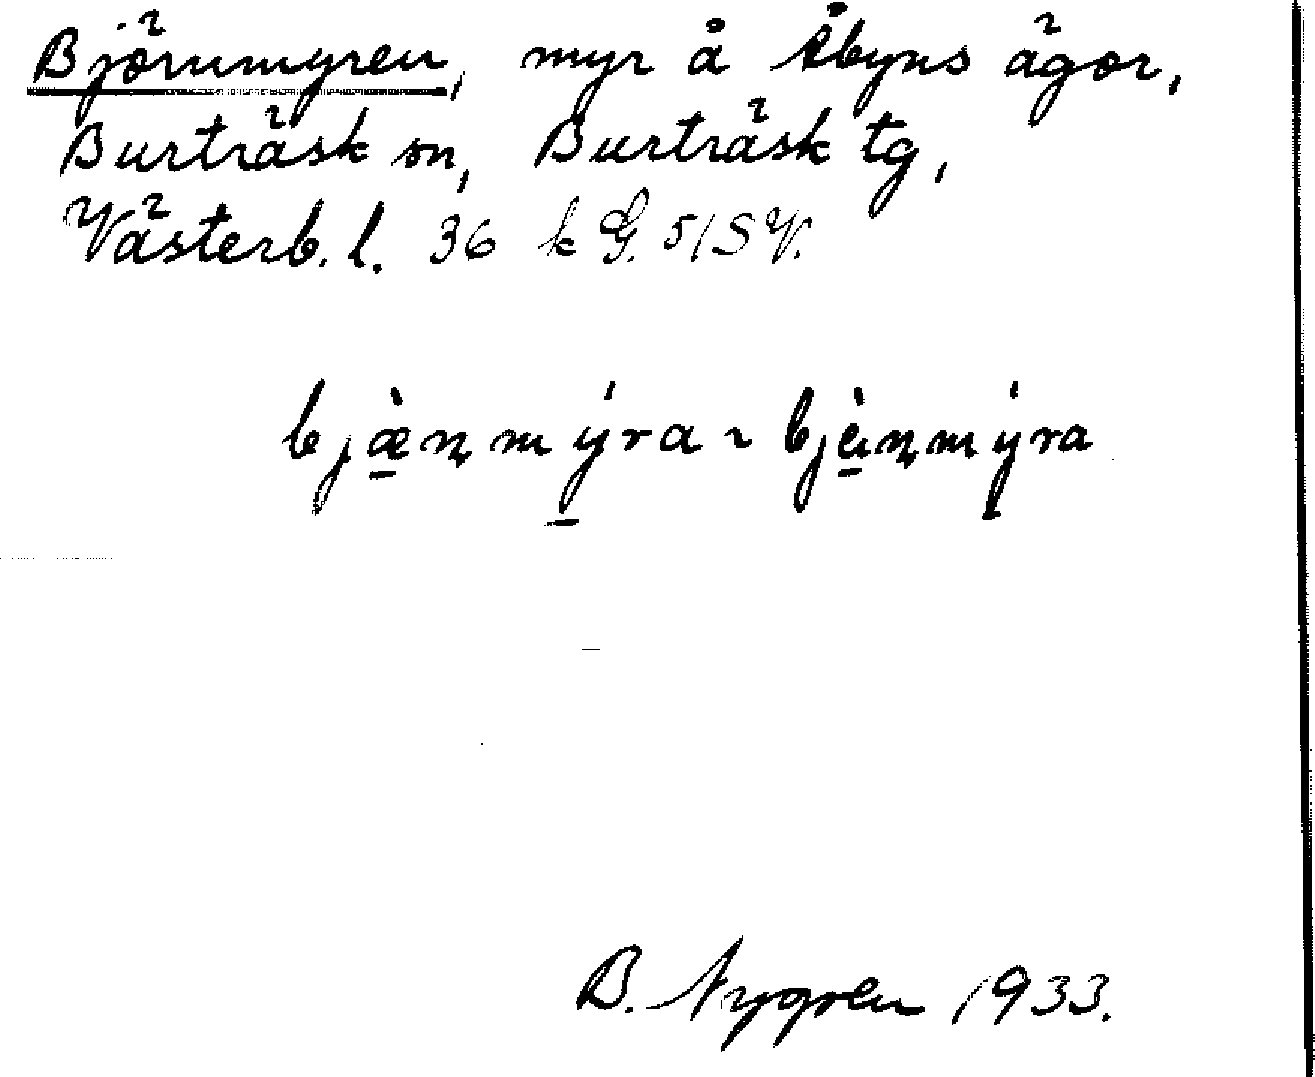 Björnmyren, myr å Åbyns ägor,
Burträsk sn, Burträsk tg,
Västerb. l. 36 k G. 5/SV.
bjæ̠̀ɳmý̠ra ~ bjà̠ɳmý̠ra
B. Nygren 1933.